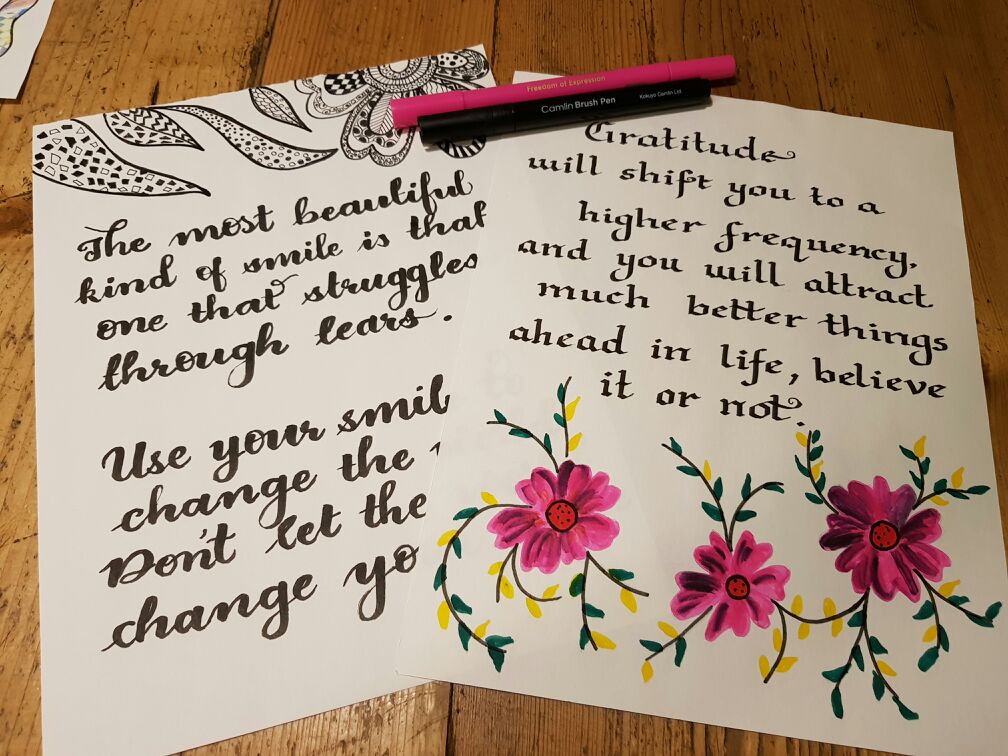 The most beautiful
kind of smile is that
one that struggles
through tears.
Use your smil
change the
Don't let the
change yo
Freedom of Expression
Camlin Brush Pen
Kokuyo Camlin Ltd.
Gratitude
will shift you to a
higher frequency,
and you will attract
much better things
ahead in life, believe
it or not.